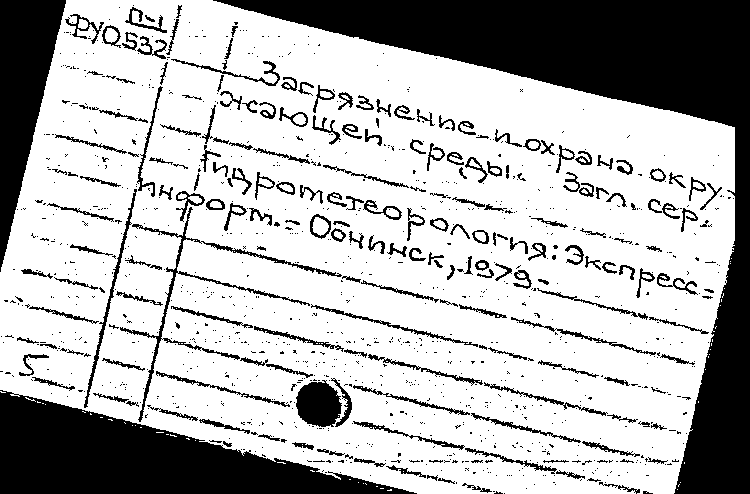 П-1
ФУ0532
Загрязнение и охрана окру-
жающей среды. Загл. сер.:
Гидрометеорология: Экспресс-
информ. - Обнинск, 1979 -
5